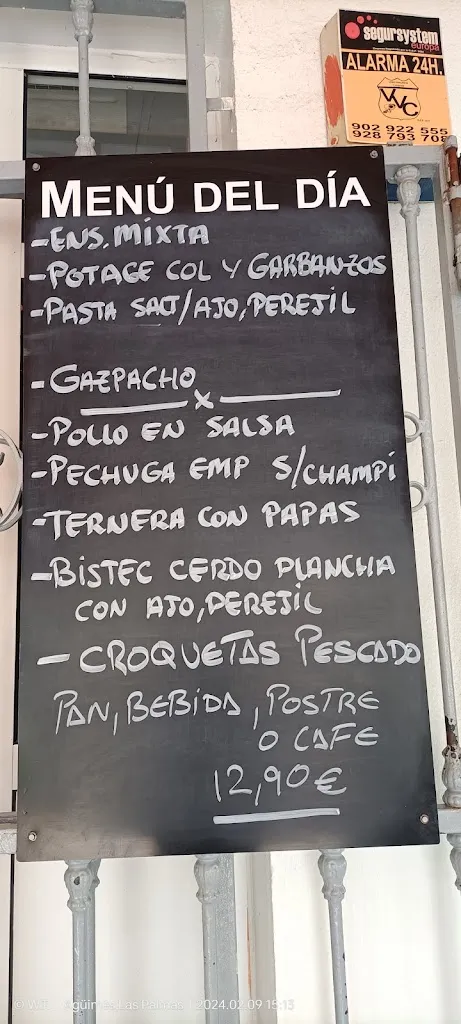 segursystem
europa
ALARMA 24H.
VVC
902 922 555
928 793 708
MENÚ DEL DÍA
-ENS. MIXTA
-POTAGE COL Y GARBANZOS
-PASTA SALT/AJO, PEREJIL
-GAZPACHO
x
-POLLO EN SALSA
-PECHUGA EMP S/CHAMPI
-TERNERA CON PAPAS
-BISTEC CERDO PLANCHA
CON AJO, PEREJIL
-CROQUETAS PESCADO
PAN, BEBIDA, POSTRE
O CAFE
12,90€
Agüimes, Las Palmas | 2024.02.09 15:13